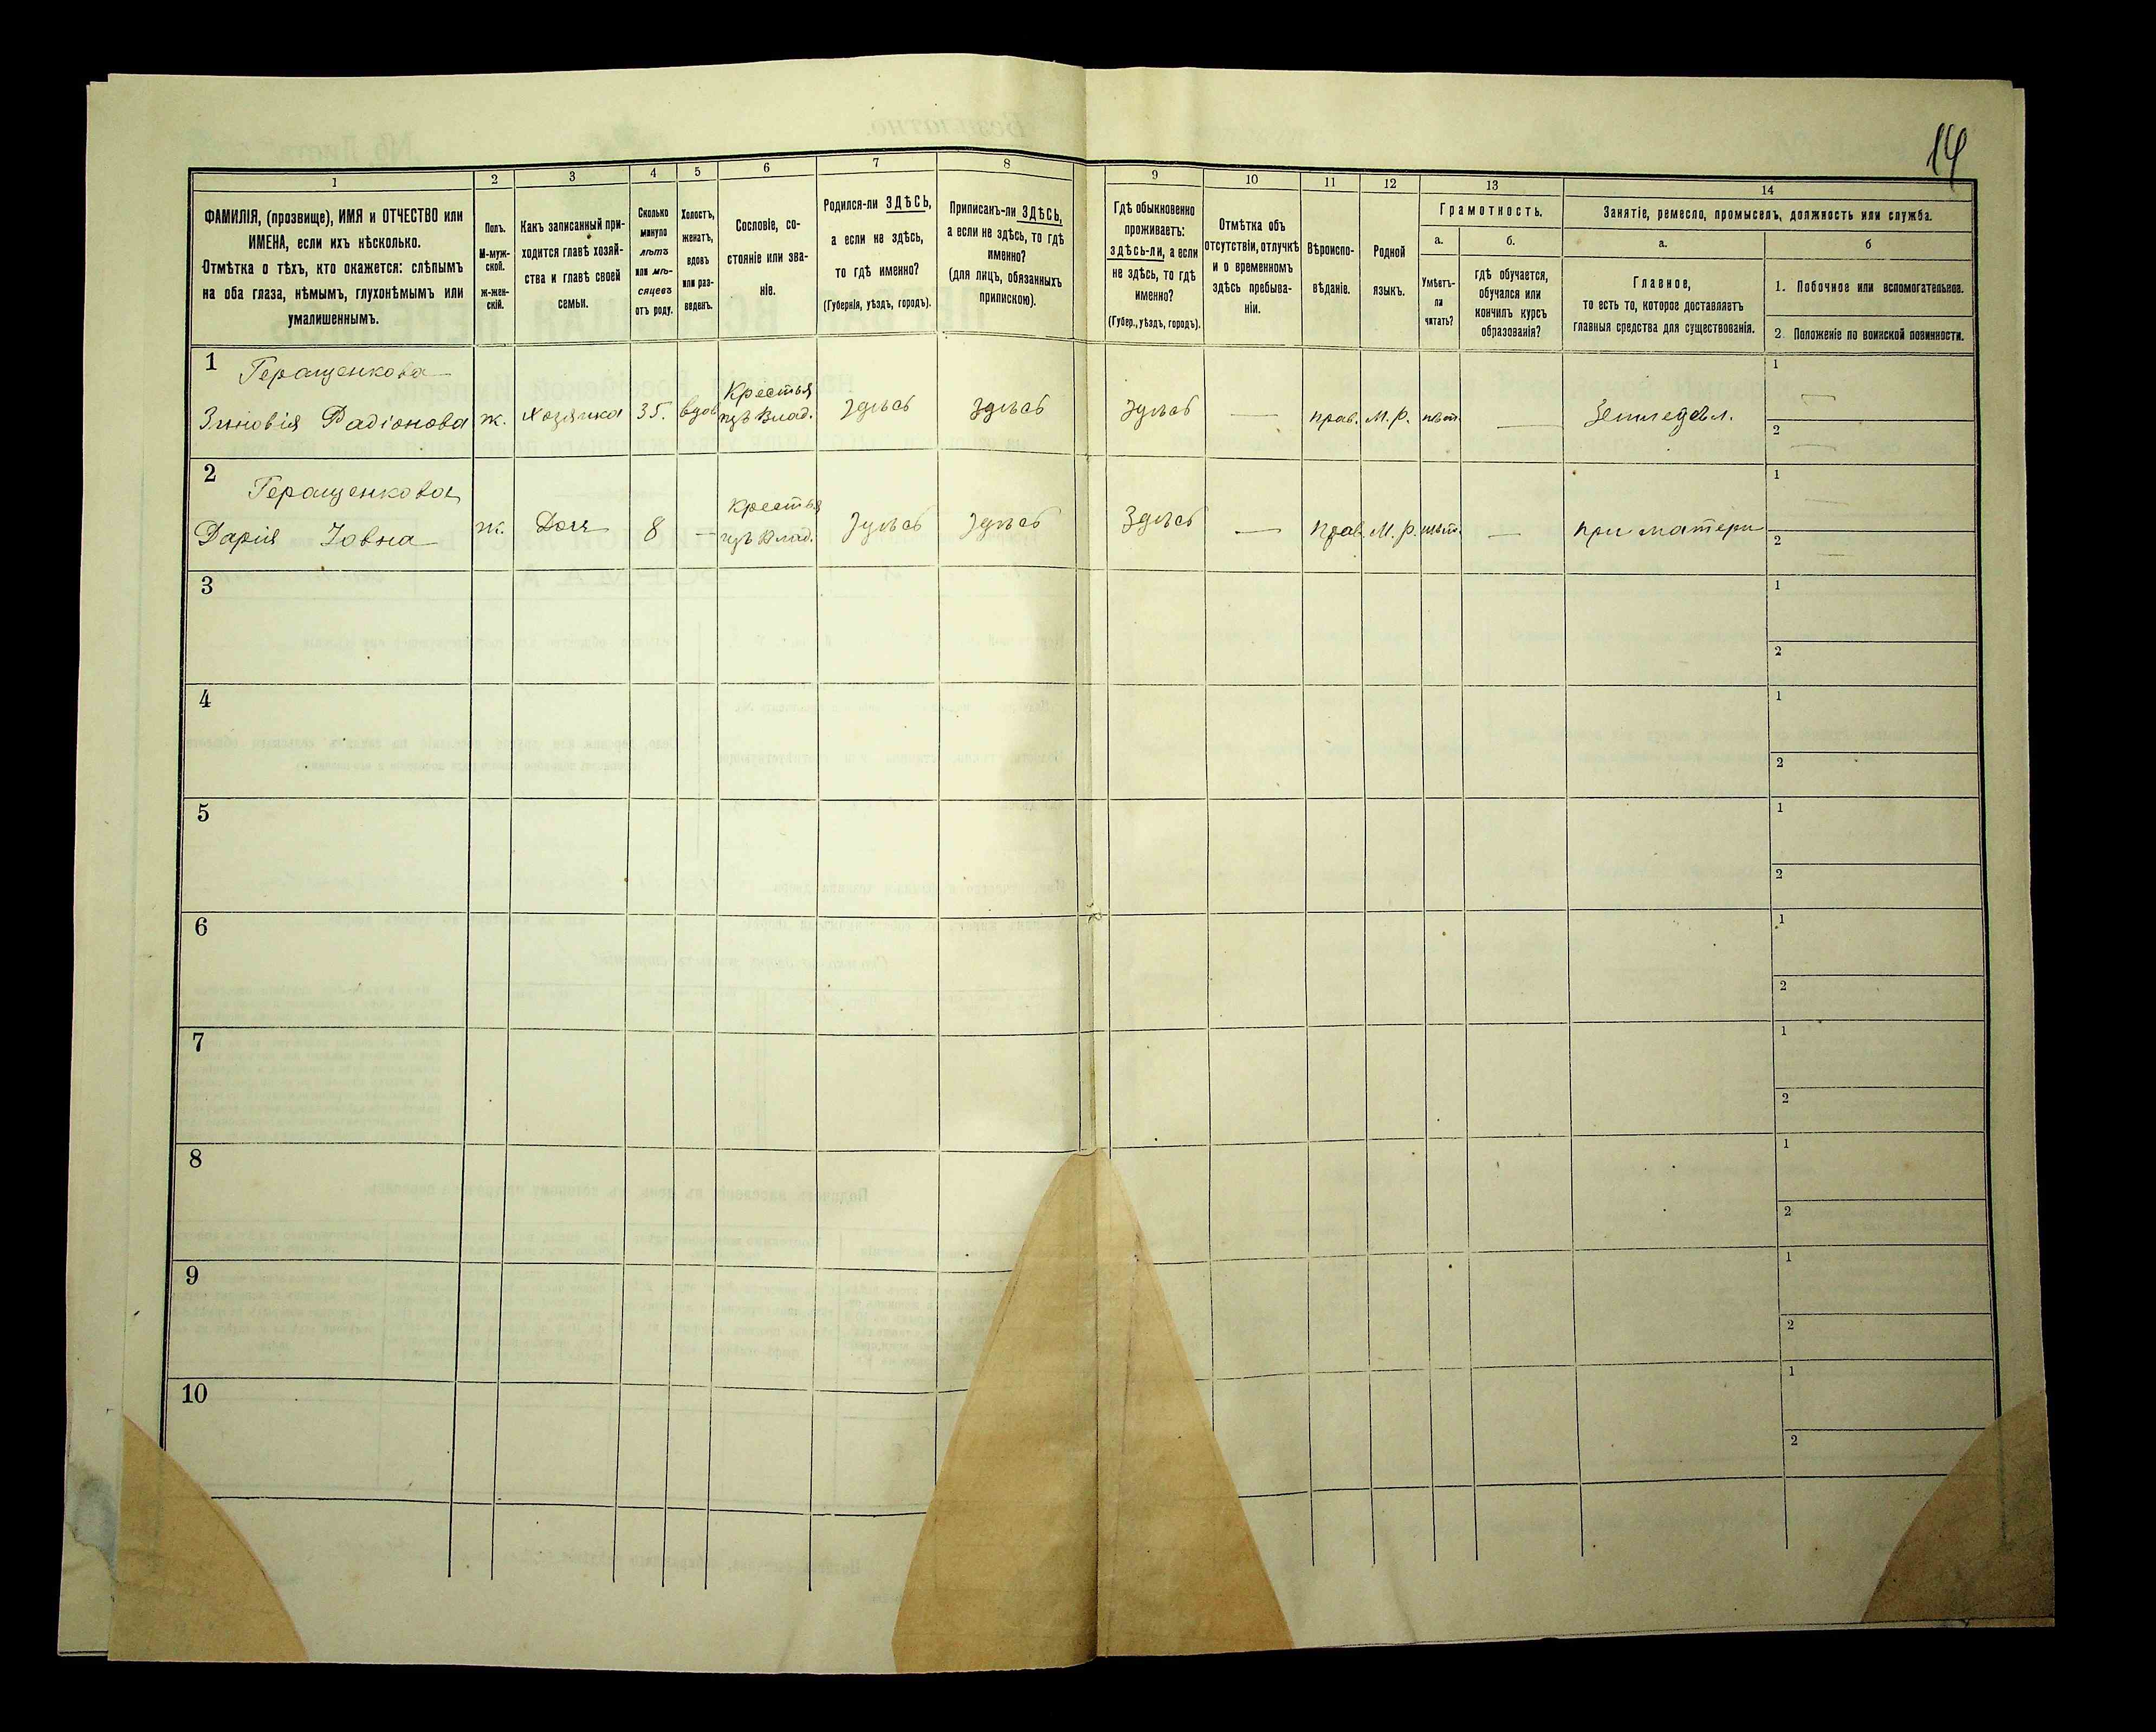 14
1
2
3
4
5
6
7
8
9
10
11
12
13
14
ФАМИЛІЯ, (прозвище), ИМЯ и ОТЧЕСТВО или
ИМЕНА, если ихъ нѣсколько.
Отмѣтка о тѣхъ, кто окажется: слѣпымъ
на оба глаза, нѣмымъ, глухонѣмымъ или
умалишеннымъ.
Полъ.
М-муж-
ской.
ж-жен-
скій.
Какъ записанный при-
ходится главѣ хозяй-
ства и главѣ своей
семьи.
Сколько
минуло
лѣтъ
или мѣ-
сяцевъ
отъ роду.
Холостъ,
женатъ,
вдовъ
или раз-
веденъ.
Сословіе, со-
стояніе или зва-
ніе.
Родился-ли ЗДѢСЬ,
а если не здѣсь,
то гдѣ именно?
(Губернія, уѣздъ, городъ).
Приписанъ-ли ЗДѢСЬ,
а если не здѣсь, то гдѣ
именно?
(для лицъ, обязанныхъ
припискою).
Гдѣ обыкновенно
проживаетъ:
ЗДѢСЬ-ЛИ, а если
не здѣсь, то гдѣ
именно?
(Губер., уѣздъ, городъ).
Отмѣтка объ
отсутствіи, отлучкѣ
и о временномъ
здѣсь пребыва-
ніи.
Вѣроиспо-
вѣданіе.
Родной
языкъ.
Грамотность.
а.
Умѣетъ-
ли
читать?
б.
гдѣ обучается,
обучался или
кончилъ курсъ
образованія?
Занятіе, ремесло, промыселъ, должность или служба.
а.
Главное,
то есть то, которое доставляетъ
главныя средства для существованія.
б
1. Побочное или вспомогательное.
2. Положеніе по воинской повинности.
1
Геращенкова
Зиновія Радіонова
ж.
Хозяйка
35.
вдов
Крестья
изъ Влад.
здѣсь
здѣсь
здѣсь
—
прав.
М. р.
нѣт.
—
Земледѣл.
1
—
2
—
2
Геращенкова
Дарія Іовна
ж.
Доч
8
—
Крестья
изъ Влад.
здѣсь
здѣсь
Здѣсь
—
Прав.
М. р.
нѣт.
—
при матери
1
—
2
—
3
1
2
4
1
2
5
1
2
6
1
2
7
1
2
8
1
2
9
1
2
10
1
2